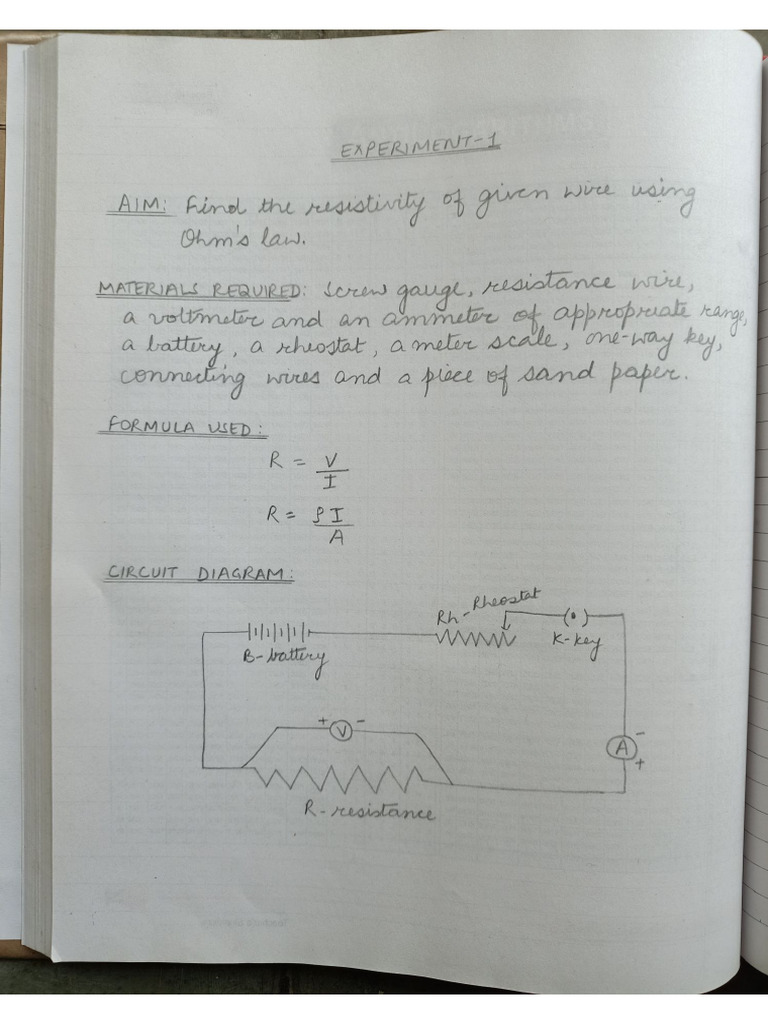 EXPERIMENT-1
AIM: Find the resistivity of given wire using
Ohm's law.
MATERIALS REQUIRED: Screw gauge, resistance wire,
a voltmeter and an ammeter of appropriate range,
a battery, a rheostat, a meter scale, one-way key,
connecting wires and a piece of sand paper.
FORMULA USED:
R = V
I
R = ρI
A
CIRCUIT DIAGRAM:
Rh-Rheostat
B-battery
K-key
+ V -
A
-
+
R-resistance